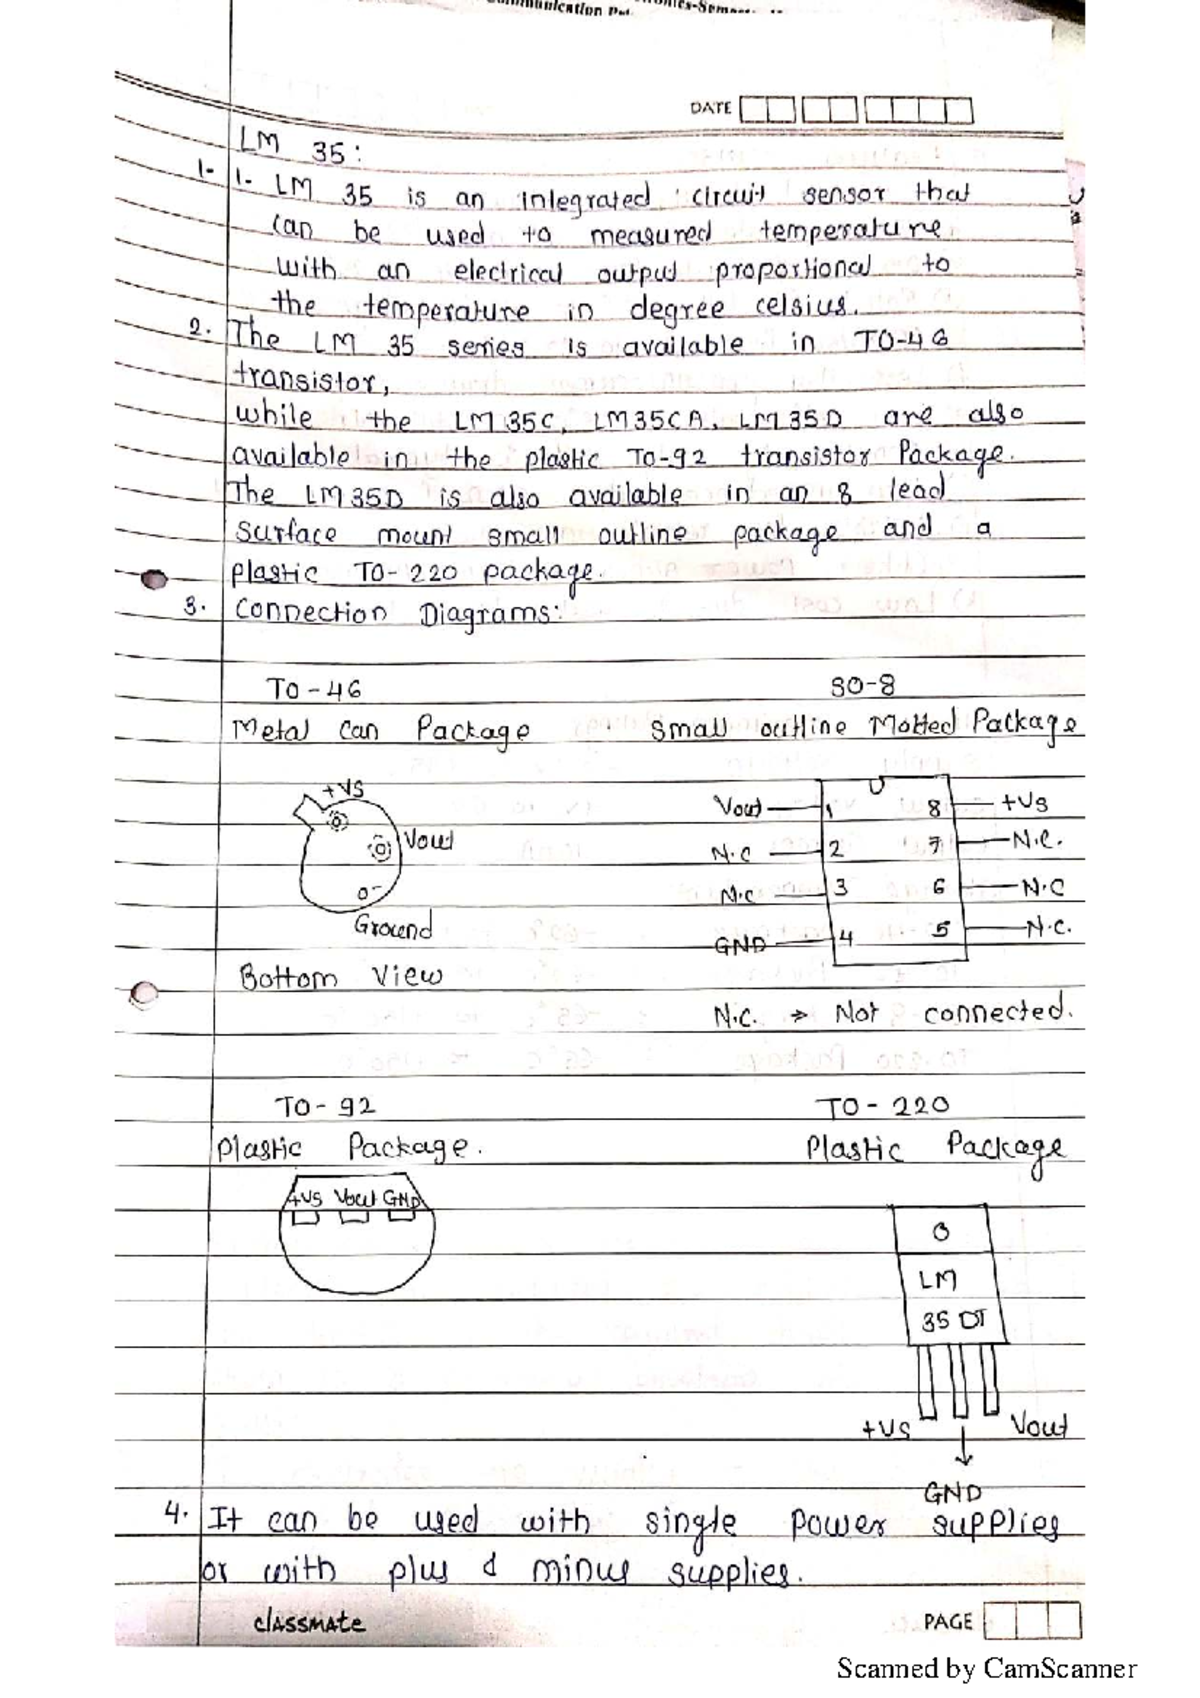 DATE
LM 35:
1- 1- LM 35 is an integrated circuit sensor that
can be used to measured temperature
with an electrical output proportional to
the temperature in degree celsius.
2. The LM 35 series is available in TO-46
transistor,
while the LM35C, LM35CA, LM35D are also
available in the plastic TO-92 transistor Package.
The LM35D is also available in an 8 lead
surface mount small outline package and a
plastic TO-220 package.
3. Connection Diagrams:
TO-46
Metal Can Package
+VS
Vout
Ground
Bottom View
SO-8
Small outline Package
Vout 1 8 +Vs
N.C 2 7 N.C.
N.C 3 6 N.C
GND 4 5 N.C.
N.C. → Not connected.
TO-92
Plastic Package.
+VS Vout GND
TO-220
Plastic Package
O
LM
35 DT
+VS Vout
GND
4. It can be used with single power supplies
or with plus & minus supplies.
classmate
PAGE
Scanned by CamScanner